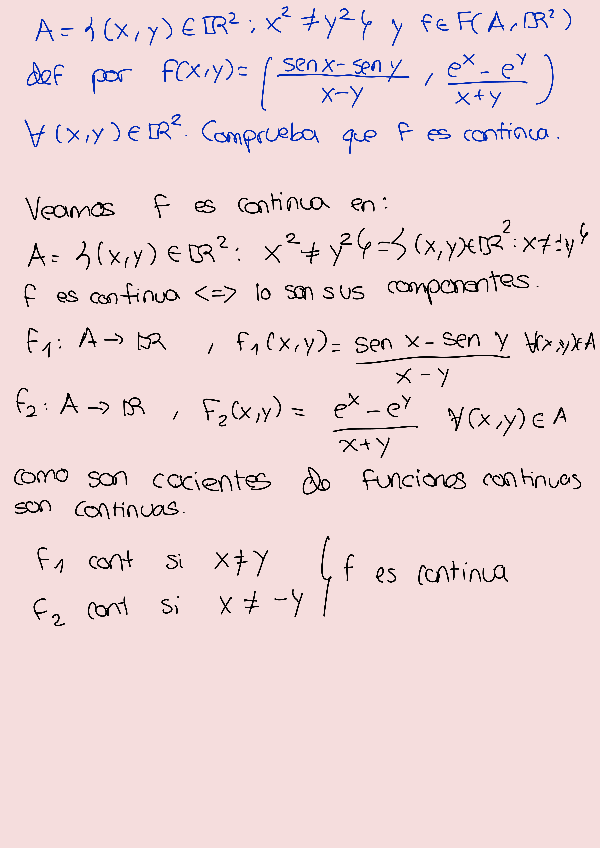 A = {(x, y) ∈ ℝ² : x² ≠ y²} y f ∈ F(A, ℝ²)
def por f(x,y) = ( (sen x - sen y)/(x-y) , (e^x - e^y)/(x+y) )
∀ (x,y) ∈ ℝ². Comprueba que f es continua.
Veamos f es continua en:
A = {(x,y) ∈ ℝ² : x² ≠ y²} = {(x,y) ∈ ℝ² : x ≠ ±y}
f es continua <=> lo son sus componentes.
f₁ : A → ℝ , f₁(x,y) = (sen x - sen y)/(x - y) ∀(x,y) ∈ A
f₂ : A → ℝ , F₂(x,y) = (e^x - e^y)/(x+y) ∀(x,y) ∈ A
como son cocientes do funciones continuas
son continuas.
f₁ cont si x ≠ y } f es continua
f₂ cont si x ≠ -y